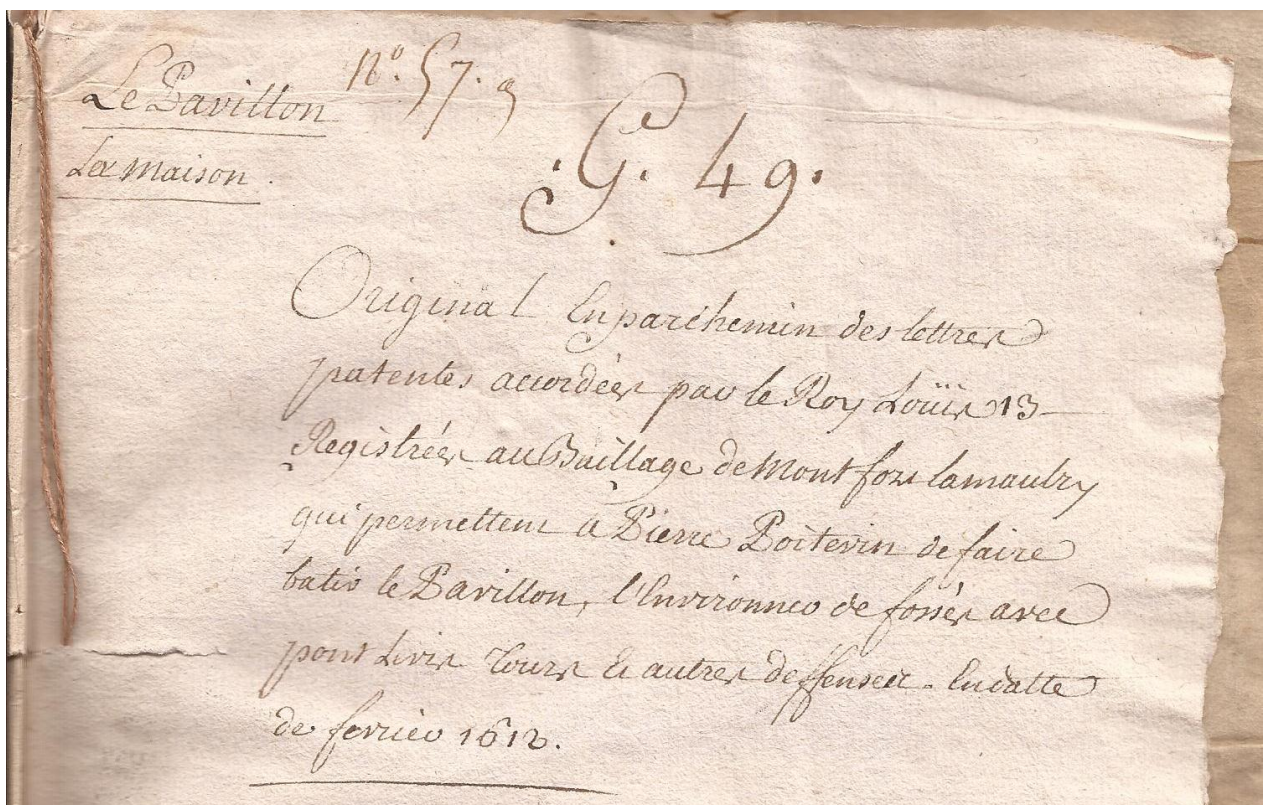 Le Pavillon
nº. 57. 9
La maison.
G. 49.
Original En parchemin des lettres
patentes accordées par le Roy Loüis 13
Registrées au Baillage de Montfort lamaulry
qui permettent a Pierre Poitevin de faire
batir le Pavillon, l'Environner de fossés avec
pont Livis Tours & autres deffenses. En datte
de fevrier 1612.